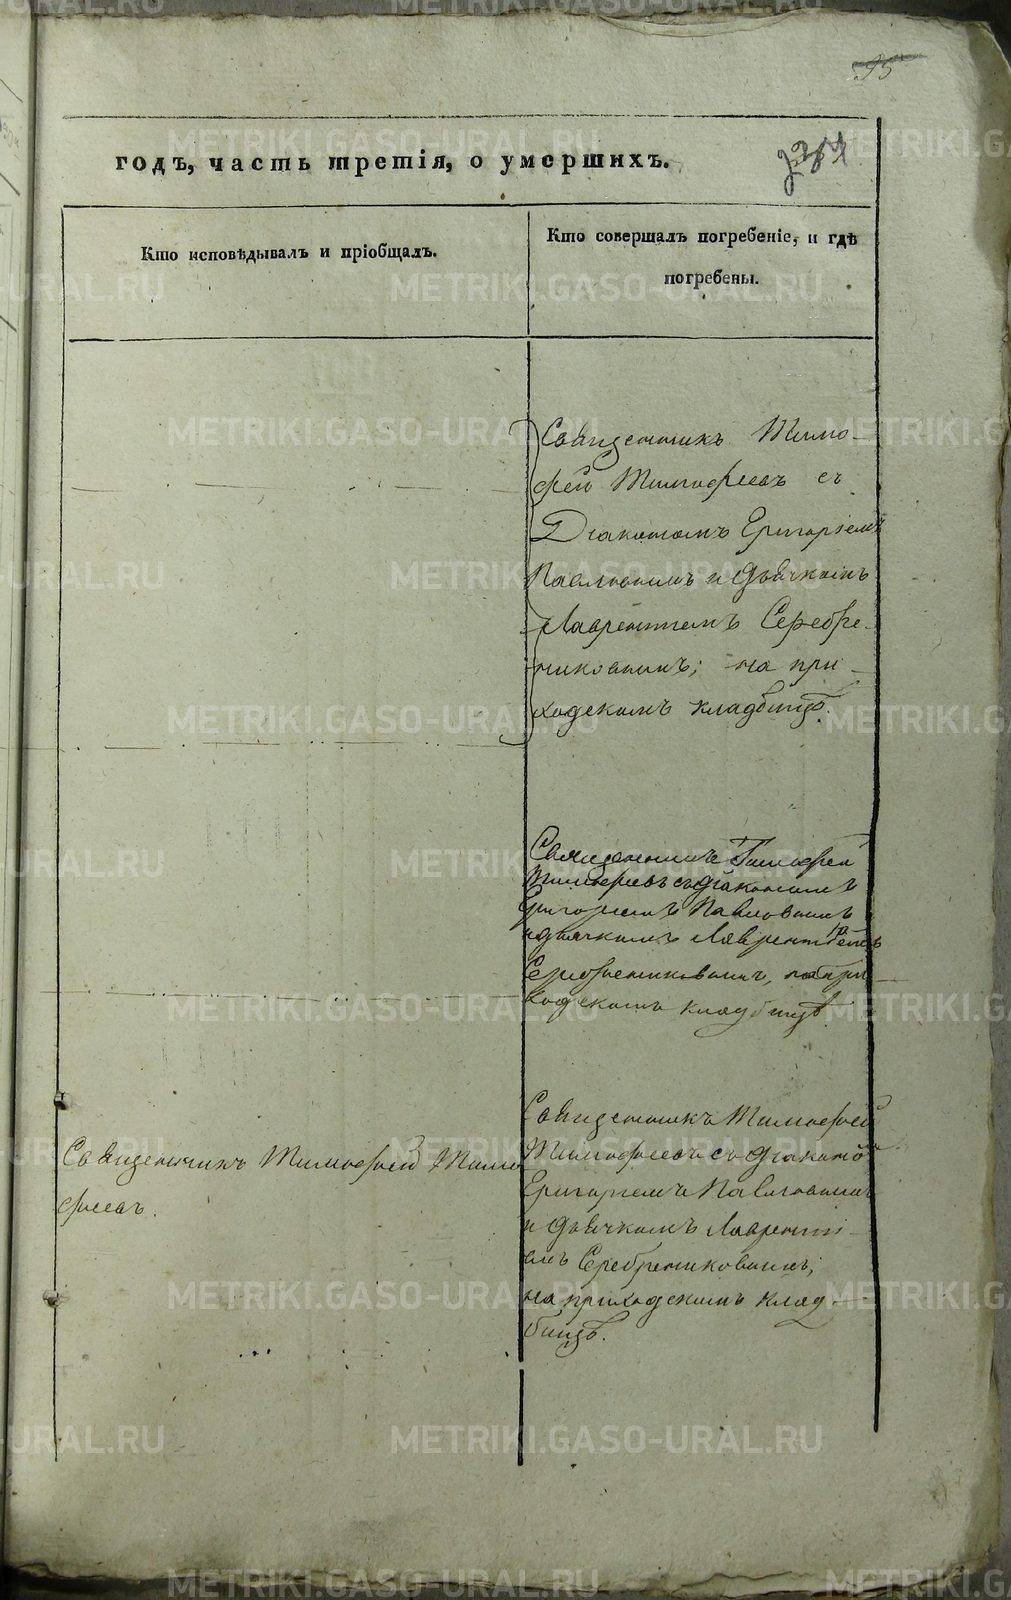 95
годъ, часть третія, о умершихъ.
Кто исповѣдывалъ и пріобщалъ.
Кто совершалъ погребеніе, и гдѣ
погребены.
Священникъ Тимо-
фей Тимофеевъ съ
Діакономъ Григоріемъ
Павловымъ и дьячкомъ
Лаврентіемъ Серебре-
никовымъ; на при-
ходскомъ кладбищѣ.
Священникъ Тимофей
Тимофеевъ съ діакономъ
Григоріемъ Павловымъ
и дьячкомъ Лаврентіемъ
Серебрениковымъ, на при
ходскомъ кладбищѣ.
Священникъ Тимофей Тимо
феевъ.
Священникъ Тимофей
Тимофеевъ съ діаконо
Григоріемъ Павловымъ
и дьячкомъ Лаврентi-
емъ Серебрениковымъ;
на приходскомъ клад-
бищѣ.
METRIKI.GASO-URAL.RU